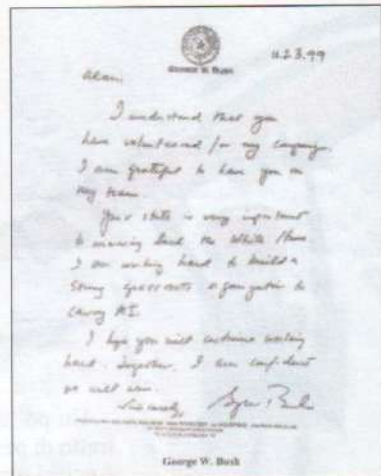 GEORGE W. BUSH
11.23.99
Adam,
I understand that you
have volunteered for my campaign.
I am grateful to have you on
my team.
Your state is very important
to winning back the White House
I am working hard to build a
strong grassroots organization to
carry
I hope you will continue working
hard. Together, I am confident
we will win.
Sincerely,
George W. Bush